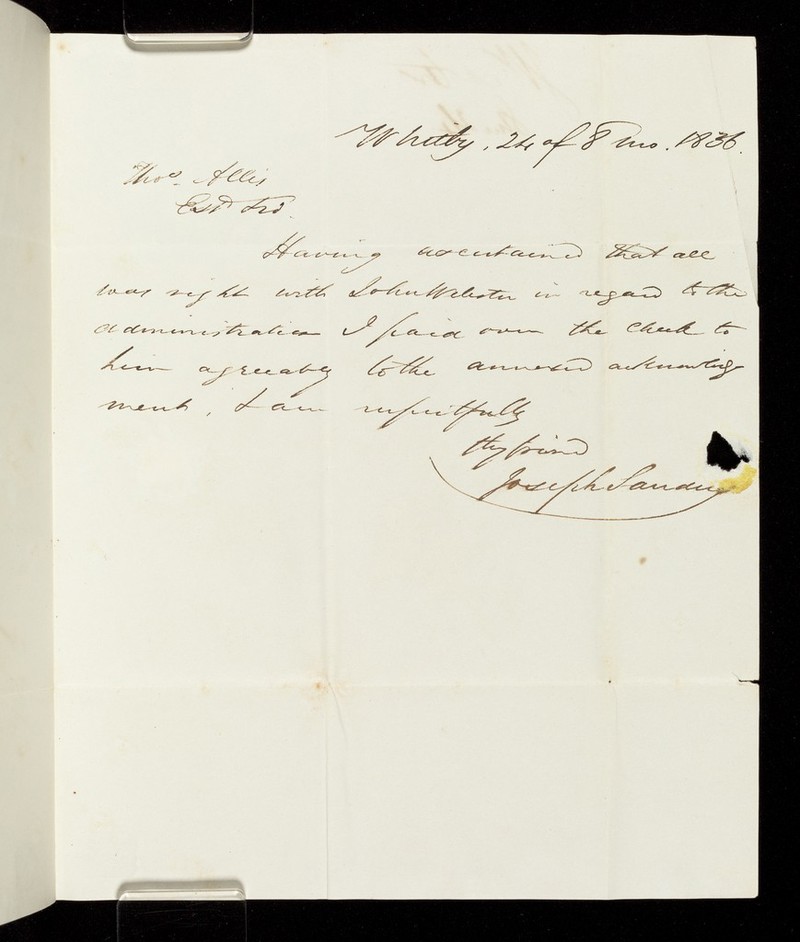 Whitby, 24 of 8 mo. 1836.
Thos. Allis
Estd. Frd.
Having ascertained that all
was right with John Webster in regard to the
administration I paid over the Check to
him agreeably to the annexed acknowledg
ment, I am respectfully
thy friend
Joseph Sanders